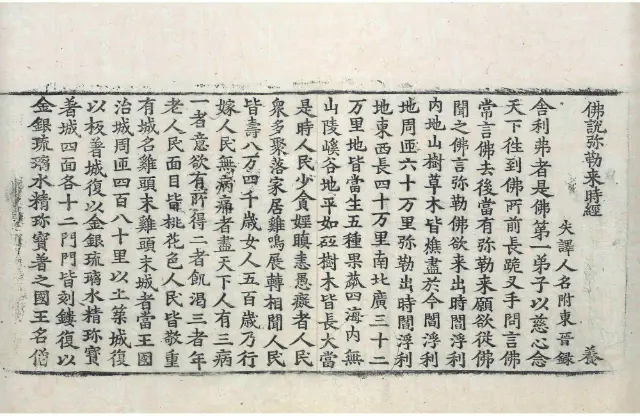 佛說弥勒来時經
失譯人名附東晉錄 養
舍利弗者是佛第一弟子以慈心念
天下往到佛所前長跪叉手問言佛
常言佛去後當有弥勒来願欲從佛
聞之佛言弥勒佛欲来出時閻浮利
内地山樹草木皆燋盡於今閻浮利
地周匝六十万里弥勒出時閻浮利
地東西長四十万里南北廣三十二
万里地皆當生五種果蓏四海内無
山陵嵠谷地平如砥樹木皆長大當
是時人民少貪婬瞋恚愚癡者人民
衆多聚落家居雞鳴展轉相聞人民
皆壽八万四千歲女人五百歲乃行
嫁人民無病痛者盡天下人有三病
一者意欲有所得二者飢渴三者年
老人民面目皆桃花色人民皆敬重
有城名雞頭末雞頭末城者當王國
治城周匝四百八十里以土築城復
以板著城復以金銀琉璃水精珎寶
著城四面各十二門門皆刻鏤復以
金銀琉璃水精珎寶著之國王名僧